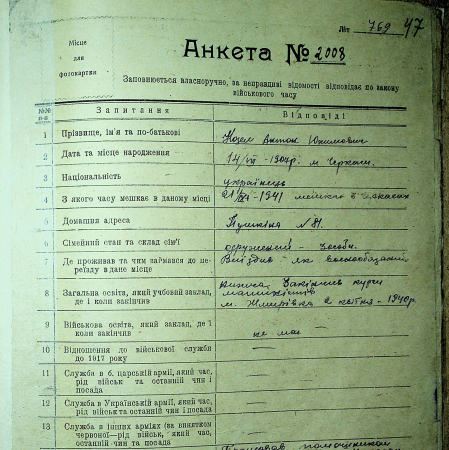 Літ 769 47
Місце
для
фотокартки
Анкета № 2008
Заповнюється власноручно, за неправдиві відомості відповідає по закону
військового часу
№№
п-п
Запитання
Відповіді
1 Прізвище, ім'я та по-батькові
Антон Юхимович
2 Дата та місце народження
14/VII - 1904р. м. Черкаси.
3 Національність
українець
4 З якого часу мешкає в даному місці
1941 мешкав в Черкасах
5 Домашня адреса
Пушкіна № 81.
6 Сімейний стан та склад сім'ї
одружений -
7 Де проживав та чим займався до пе-
реїзду в дане місце
Виїздив - як военнообязаний
8 Загальна освіта, який учбовий заклад,
де і коли закінчив
Закінчив курси
машиністів
м. 1940р.
9 Військова освіта, який заклад, де і
коли закінчив
не має
10 Відношення до військової служби
до 1917 року
11 Служба в б. царській армії, який час,
рід військ та останній чин і
посада
12 Служба в Українській армії, який час,
рід військ та останній чин і посада
13 Служба в інших арміях (за винятком
червоної—рід військ, який час,
останній чин та посада
Працював помошником